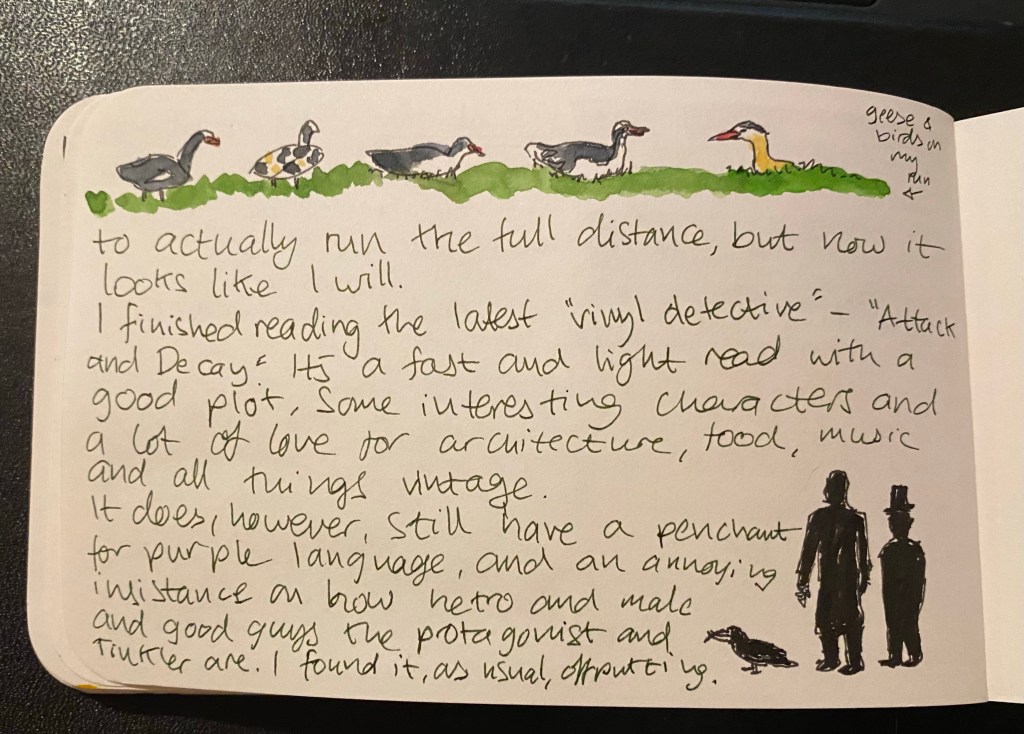 geese &
birds on
my
run
to actually run the full distance, but now it
looks like I will.
I finished reading the latest "vinyl detective" – "Attack
and Decay". It's a fast and light read with a
good plot, some interesting characters and
a lot of love for architecture, food, music
and all things vintage.
It does, however, still have a penchant
for purple language, and an annoying
insistance on how hetro and male
and good guys the protagonist and
Tinkler are. I found it, as usual, offputting.